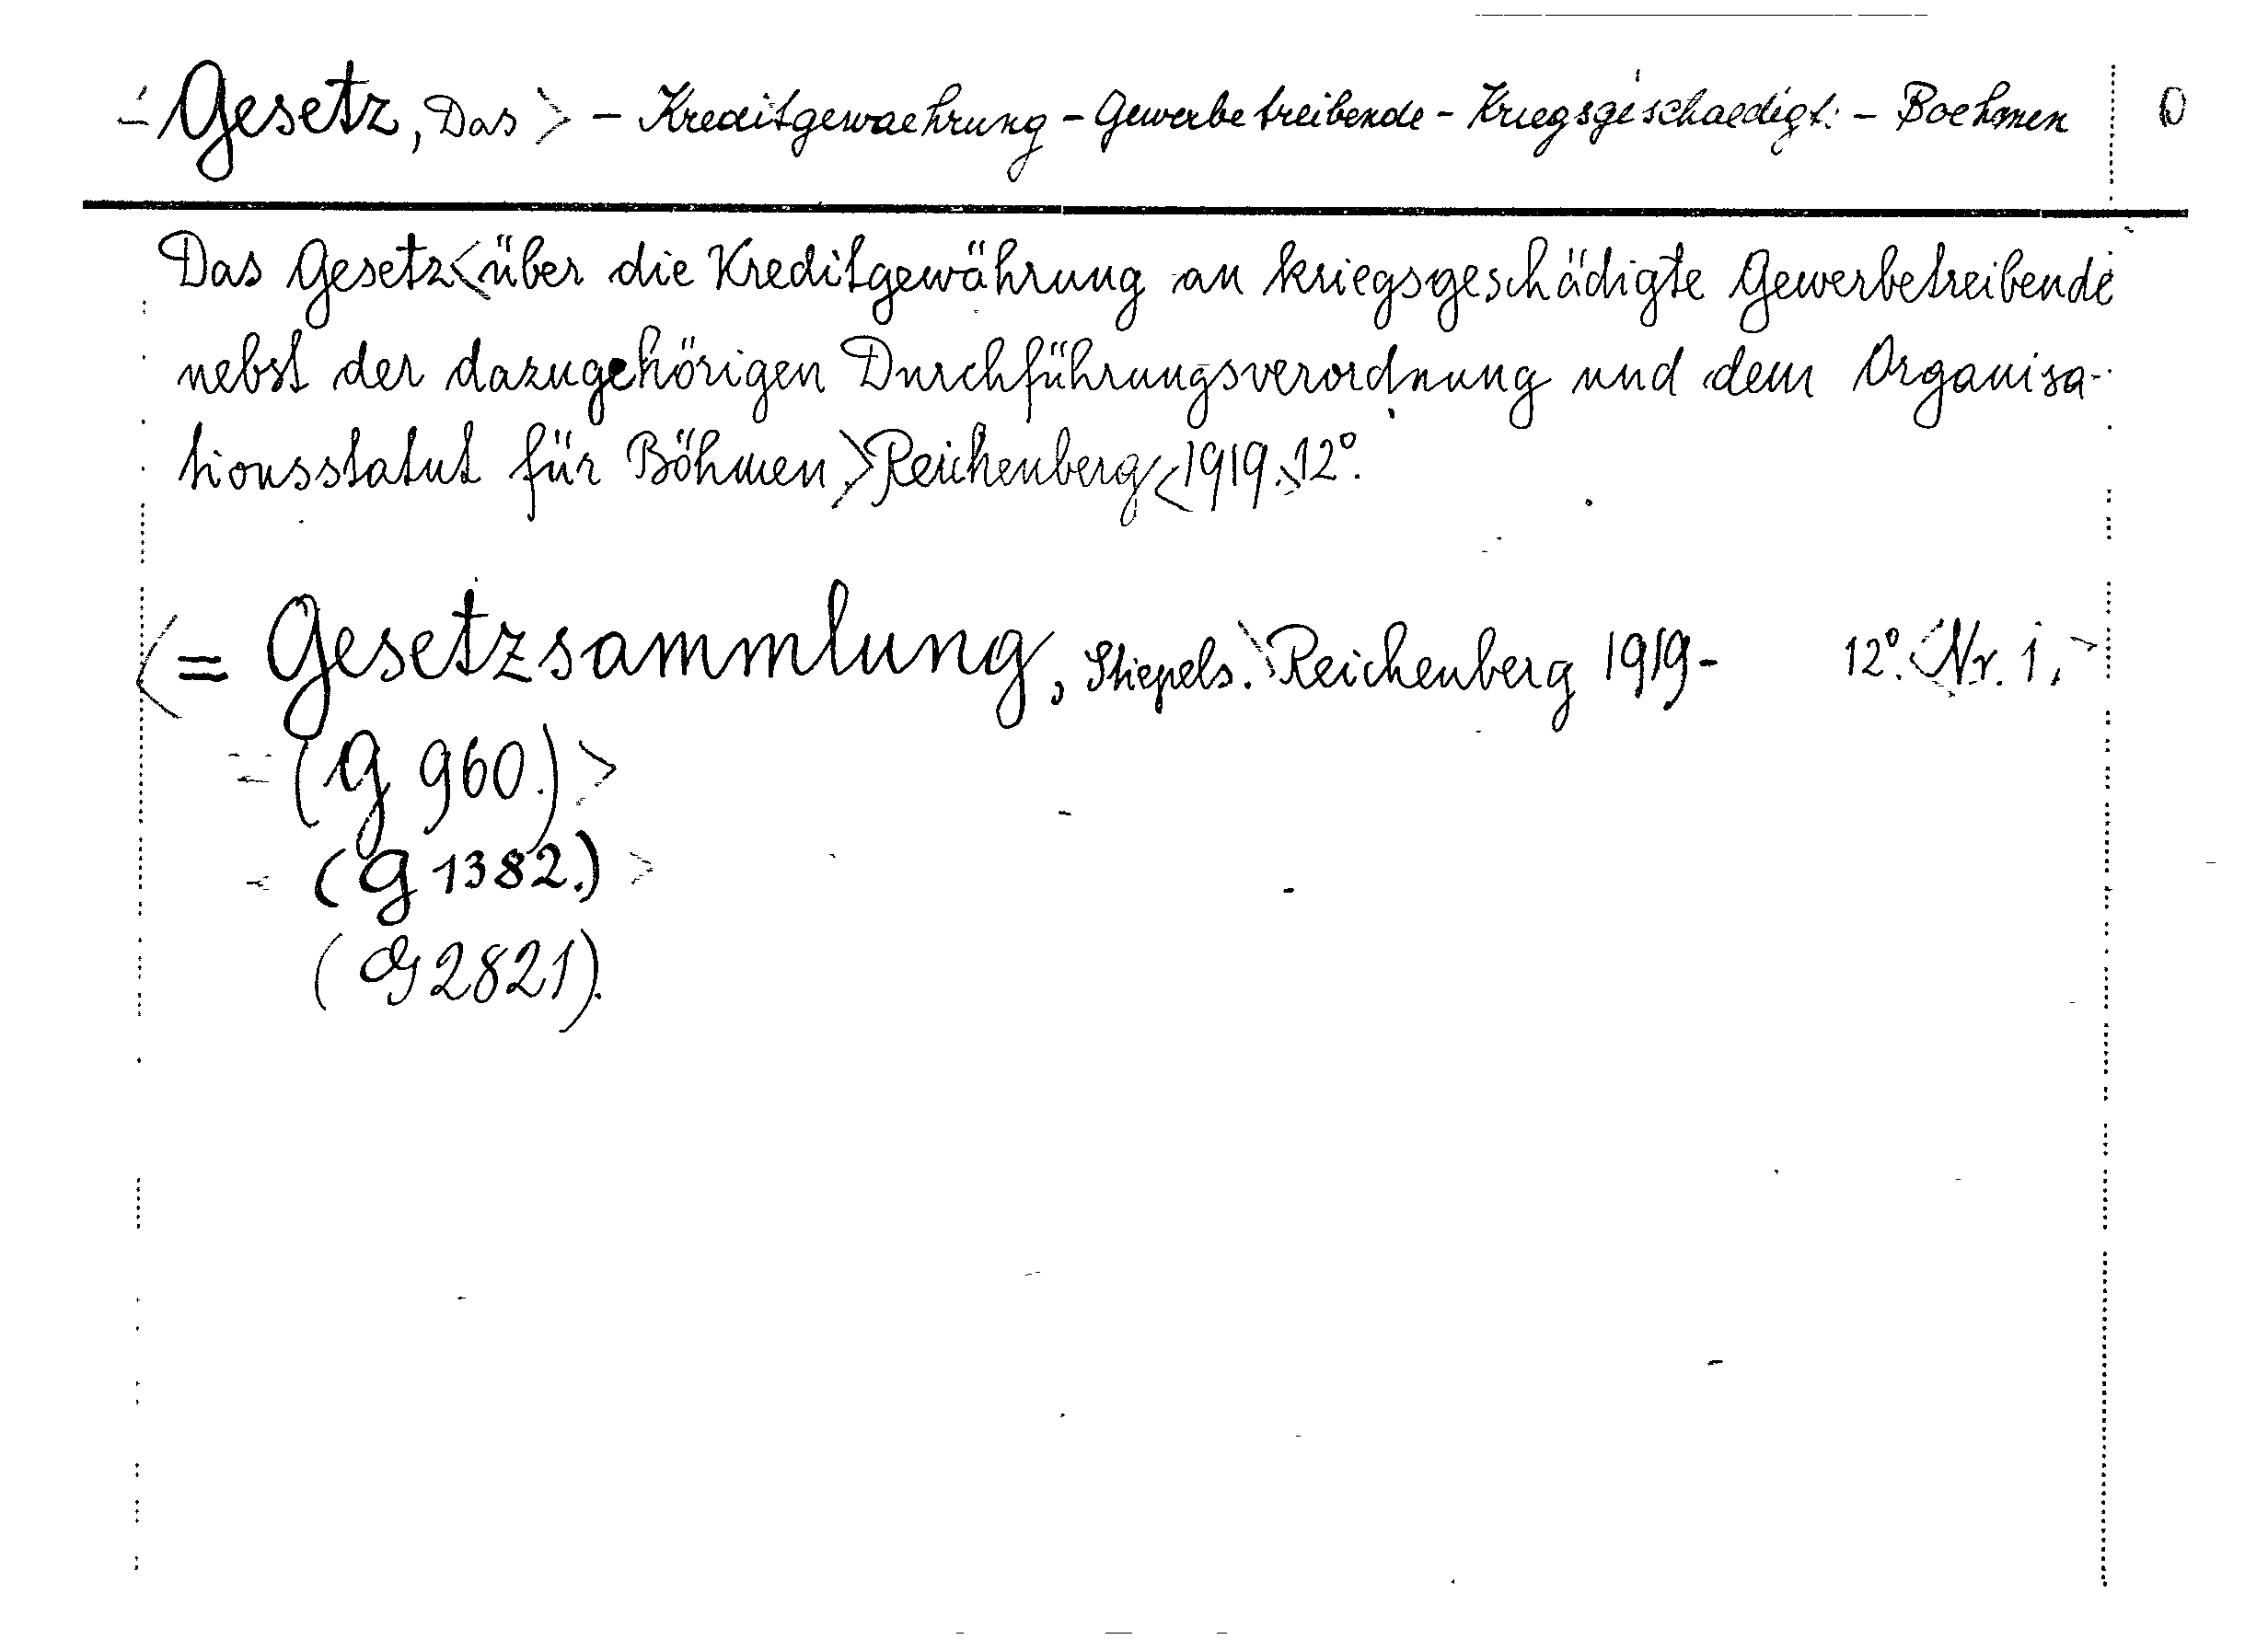 Gesetz, Das > - Kreditgewaehrung - Gewerbetreibende - Kriegsgeschaedigt: - Boehmen D
Das Gesetz < über die Kreditgewährung an kriegsgeschädigte Gewerbetreibende
nebst der dazugehörigen Durchführungsverordnung und dem Organisa-
tionsstatut für Böhmen. > Reichenberg < 1919. > 12°.
< = Gesetzsammlung, Stiepels. > Reichenberg 1919- 12°. < Nr. 1. >
(G 960.) >
(G 1382.) >
(G 2821).